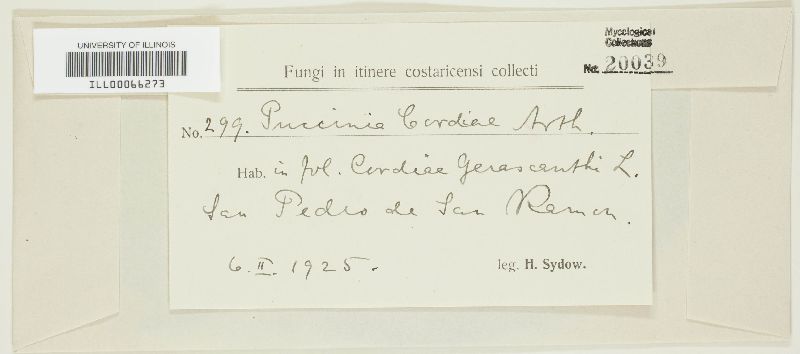 UNIVERSITY OF ILLINOIS
ILL00066273
Mycological
Collections
No. 20039
Fungi in itinere costaricensi collecti
No. 299. Puccinia Cordiae Arth.
Hab. in fol. Cordiae Gerascanthi L.
San Pedro de San Ramon.
6. II. 1925.
leg. H. Sydow.